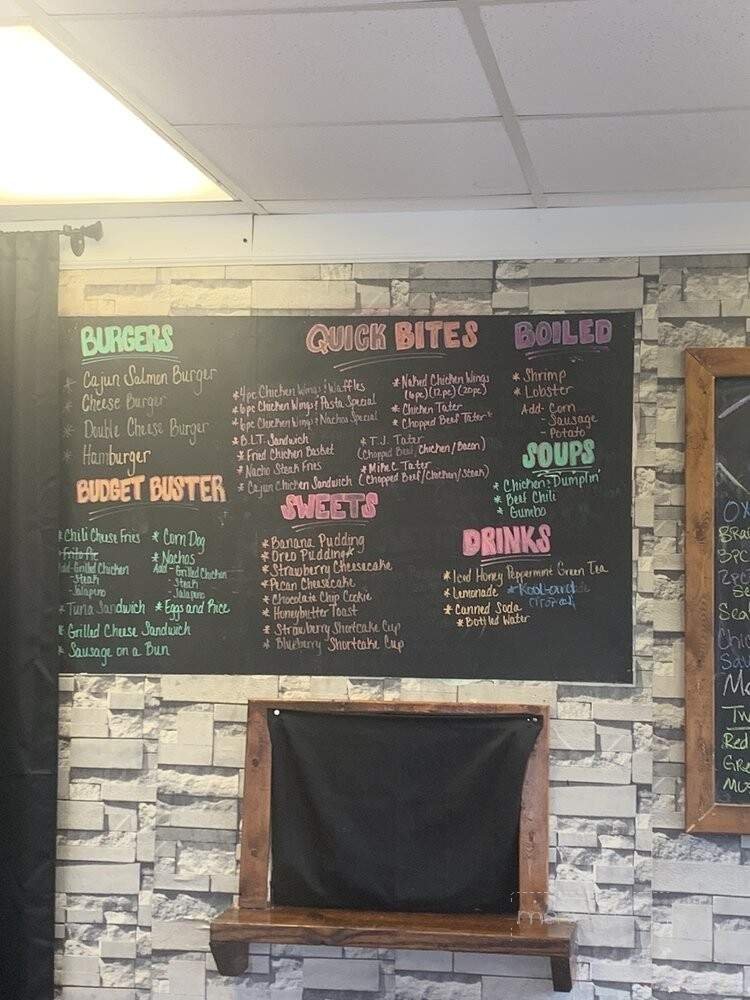 BURGERS
* Cajun Salmon Burger
* Cheese Burger
* Double Cheese Burger
* Hamburger
BUDGET BUSTER
* Chili Cheese Fries
* Frito Pie
Add-Grilled Chicken
Steak
Jalapeno
* Tuna Sandwich
* Grilled Cheese Sandwich
* Sausage on a Bun
* Corn Dog
* Nachos
Add-Grilled Chicken
Steak
Jalapeno
* Eggs and Rice
QUICK BITES
* 4pc Chicken Wings & Waffles
* 6pc Chicken Wings & Pasta Special
* 6pc Chicken Wings & Nachos Special
* B.L.T. Sandwich
* Fried Chicken Basket
* Nacho Steak Fries
* Cajun Chicken Sandwich
* Naked Chicken Wings
(6pc) (12pc) (20pc)
* Chicken Tater
* Chopped Beef Tater
* T.J. Tater
(Chopped Beef/Chicken/Bacon)
* Mike C. Tater
(Chopped Beef/Chicken/Steak)
SWEETS
* Banana Pudding
* Oreo Pudding
* Strawberry Cheesecake
* Pecan Cheesecake
* Chocolate Chip Cookie
* Honeybutter Toast
* Strawberry Shortcake Cup
* Blueberry Shortcake Cup
BOILED
* Shrimp
* Lobster
Add- Corn
- Sausage
- Potato
SOUPS
* Chicken & Dumplin'
* Beef Chili
* Gumbo
DRINKS
* Iced Honey Peppermint Green Tea
* Lemonade * Kool-aid
(Tropical)
* Canned Soda
* Bottled Water
OX
3pc
Sea
Ma
Red
Gre
Mus